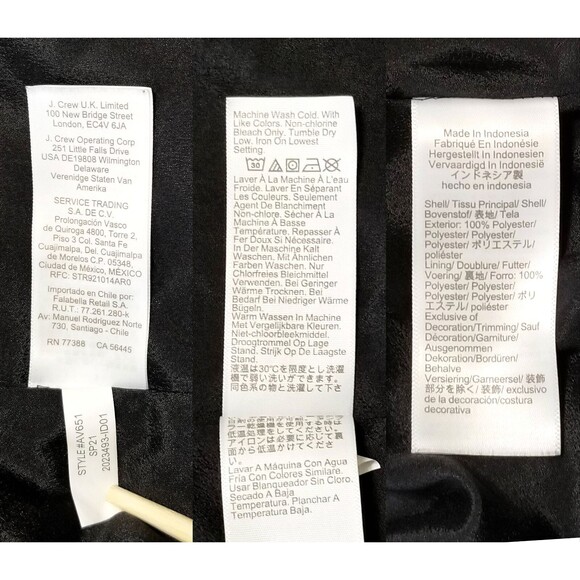 J. Crew U.K. Limited
100 New Bridge Street
London, EC4V 6JA
J. Crew Operating Corp
251 Little Falls Drive
USA DE19808 Wilmington
Delaware
Verenidge Staten Van
Amerika
SERVICE TRADING
S.A. DE C.V.
Prolongación Vasco
de Quiroga 4800, Torre 2,
Piso 3 Col. Santa Fe
Cuajimalpa Del. Cuajimalpa
de Morelos C.P. 05348,
Ciudad de México, MÉXICO
RFC: STR921014AR0
Importado en Chile por:
Falabella Retail S.A.
R.U.T.: 77.261.280-k
Av: Manuel Rodriguez Norte
730, Santiago - Chile
RN 77388 CA 56445
STYLE#AV651
SP21
2023493-ID01
Machine Wash Cold. With
Like Colors. Non-chlorine
Bleach Only. Tumble Dry
Low. Iron On Lowest
Setting.
30
Laver À La Machine À L'eau
Froide. Laver En Séparant
Les Couleurs. Seulement
Agent De Blanchiment
Non-chlore. Sécher À La
Machine À Basse
Température. Repasser À
Fer Doux Si Nécessaire.
In Der Maschine Kalt
Waschen. Mit Ähnlichen
Farben Waschen. Nur
Chlorfreies Bleichmittel
Verwenden. Bei Geringer
Wärme Trocknen. Bei
Bedarf Bei Niedriger Wärme
Bügeln.
Warm Wassen In Machine
Met Vergelijkbare Kleuren.
Niet-chloorbleekmiddel.
Droogtrommel Op Lage
Stand. Strijk Op De Laagste
Stand.
液温は30℃を限度とし洗濯
機で弱い洗いができます。
同色系の物と洗濯して下さ
アイロンは必要に応じて裏
面から低温かけてください。
Lavar A Máquina Con Agua
Fría Con Colores Similare.
Usar Blanqueador Sin Cloro.
Secado A Baja
Temperatura. Planchar A
Temperatura Baja.
Made In Indonesia
Fabriqué En Indonésie
Hergestellt In Indonesien
Vervaardigd In Indonesië
インドネシア製
hecho en indonesia
Shell/ Tissu Principal/ Shell/
Bovenstof/ 表地/ Tela
Exterior: 100% Polyester/
Polyester/ Polyester/
Polyester/ ポリエステル/
poliéster
Lining/ Doublure/ Futter/
Voering/ 裏地/ Forro: 100%
Polyester/ Polyester/
Polyester/ Polyester/ ポリ
エステル/ poliéster
Exclusive of
Decoration/Trimming/ Sauf
Décoration/Garniture/
Ausgenommen
Dekoration/Bordüren/
Behalve
Versiering/Garneersel/ 装飾
部分を除く/ 装飾/ exclusivo
de la decoración/costura
decorativa